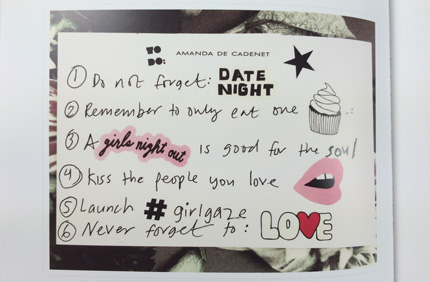 TO DO: AMANDA DE CADENET
① Do not forget: DATE NIGHT
② Remember to only eat one
③ A girls night out is good for the soul
④ Kiss the people you love
⑤ Launch # girlgaze
⑥ Never forget to: LOVE